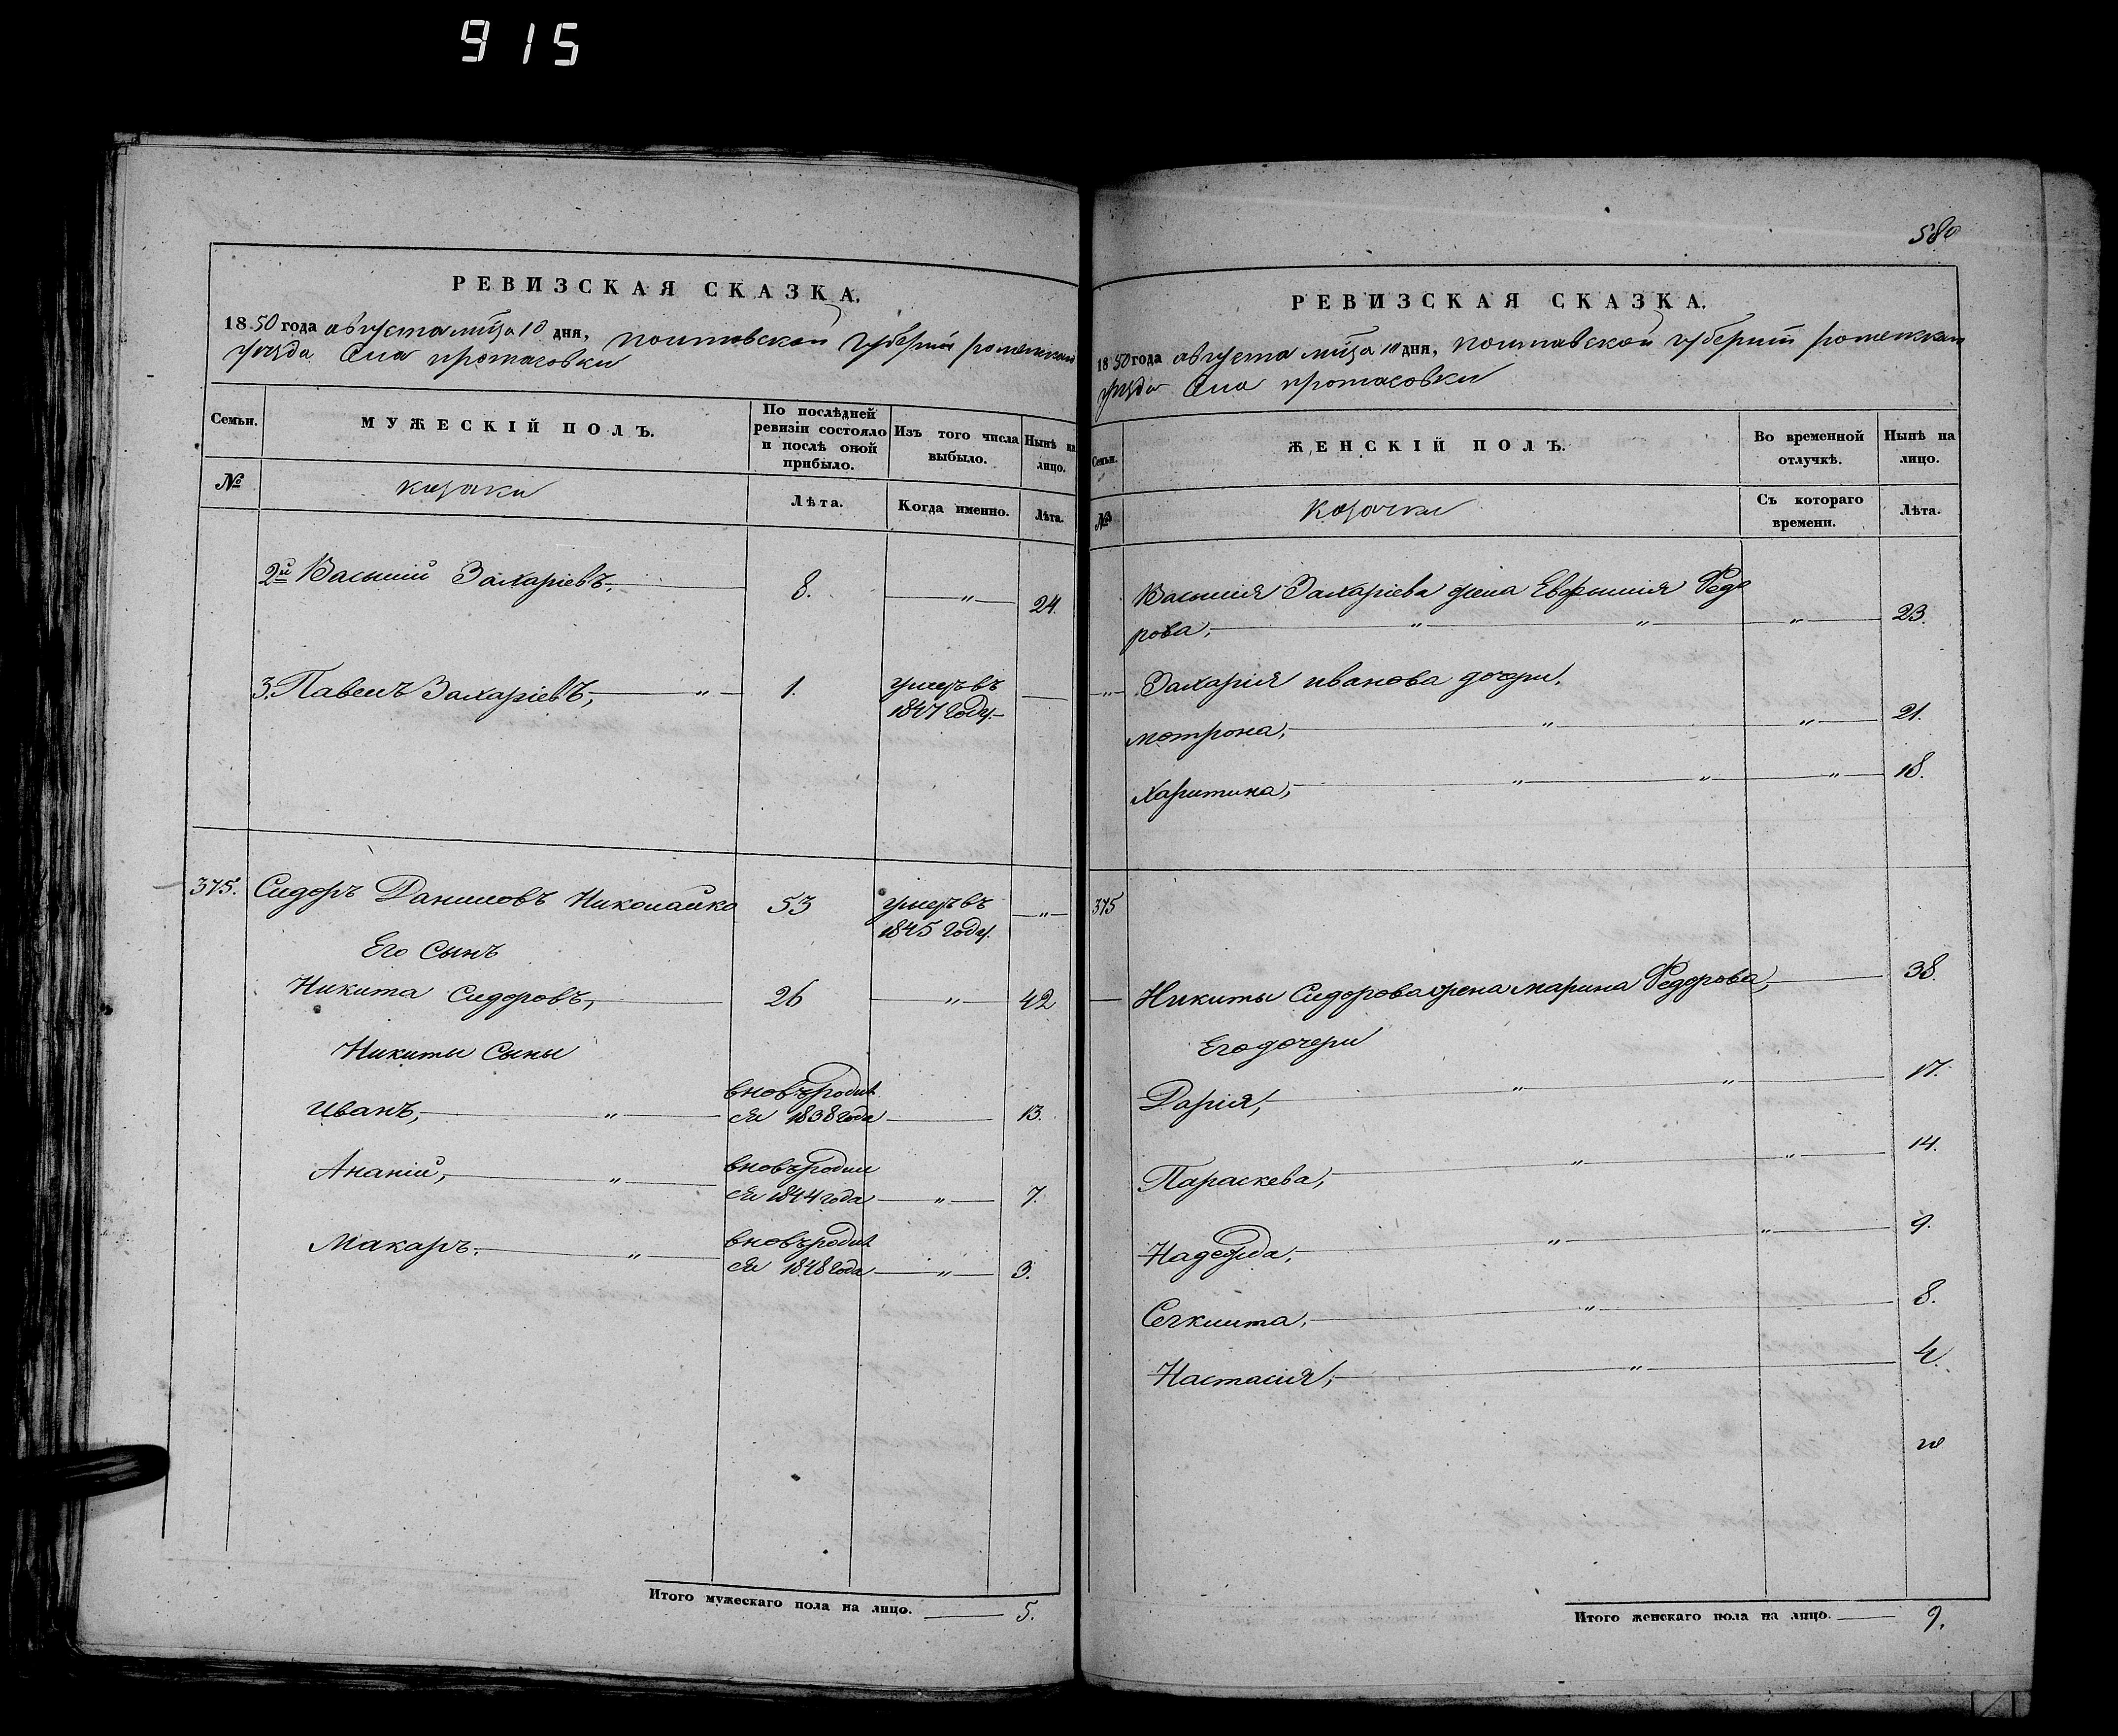 915
РЕВИЗСКАЯ СКАЗКА.
1850 года августа мца 10 дня, полтавской губернии роменскаго
уезда Села протасовки
Семьи. МУЖЕСКІЙ ПОЛЪ. По послѣдней ревизіи состояло и послѣ оной прибыло. Изъ того числа выбыло. Нынѣ на лицо.
№ козаки Лѣта. Когда именно. Лѣта.
2й Василий Захаріевъ, 8. — " — 24.
3. Павелъ Захаріевъ, — " — 1. умеръ въ —
1847 году. —
375. Сидоръ Даниловъ Николайко 53 умеръ въ — " —
1845 году.
Его Сынъ
Никита Сидоровъ, 26 — " — 42
Никиты Сыны
вновь родил
Иванъ, — " — ся 1838 года — 13.
вновь родил
Ананій, — " — ся 1844 года — " — 7.
вновь родил
Макаръ. — " — ся 1848 года — " — 3.
Итого мужескаго пола на лицо. — 5.
580
РЕВИЗСКАЯ СКАЗКА.
1850 года августа мца 10 дня, полтавской губернии роменскаго
уезда Села протасовки
Семьи. ЖЕНСКІЙ ПОЛЪ. Во временной отлучкѣ. Нынѣ на лицо.
№ козачки Съ котораго времени. Лѣта.
Василия Захаріева жена Евфимия Федо
рова, — " — " — " — 23.
— " — Захарія иванова дочери,
мотрона, — " — " — 21.
Харитина, — " — " — " — 18.
375
— Никиты Сидорова жена марина Федорова, — 38.
Его дочери
Дарія, — " — " — 17.
Параскева, — " — " — 14.
Надежда, — " — " — 9.
— " — 8.
Настасія, — " — 4.
Итого женскаго пола на лицо. — 9.